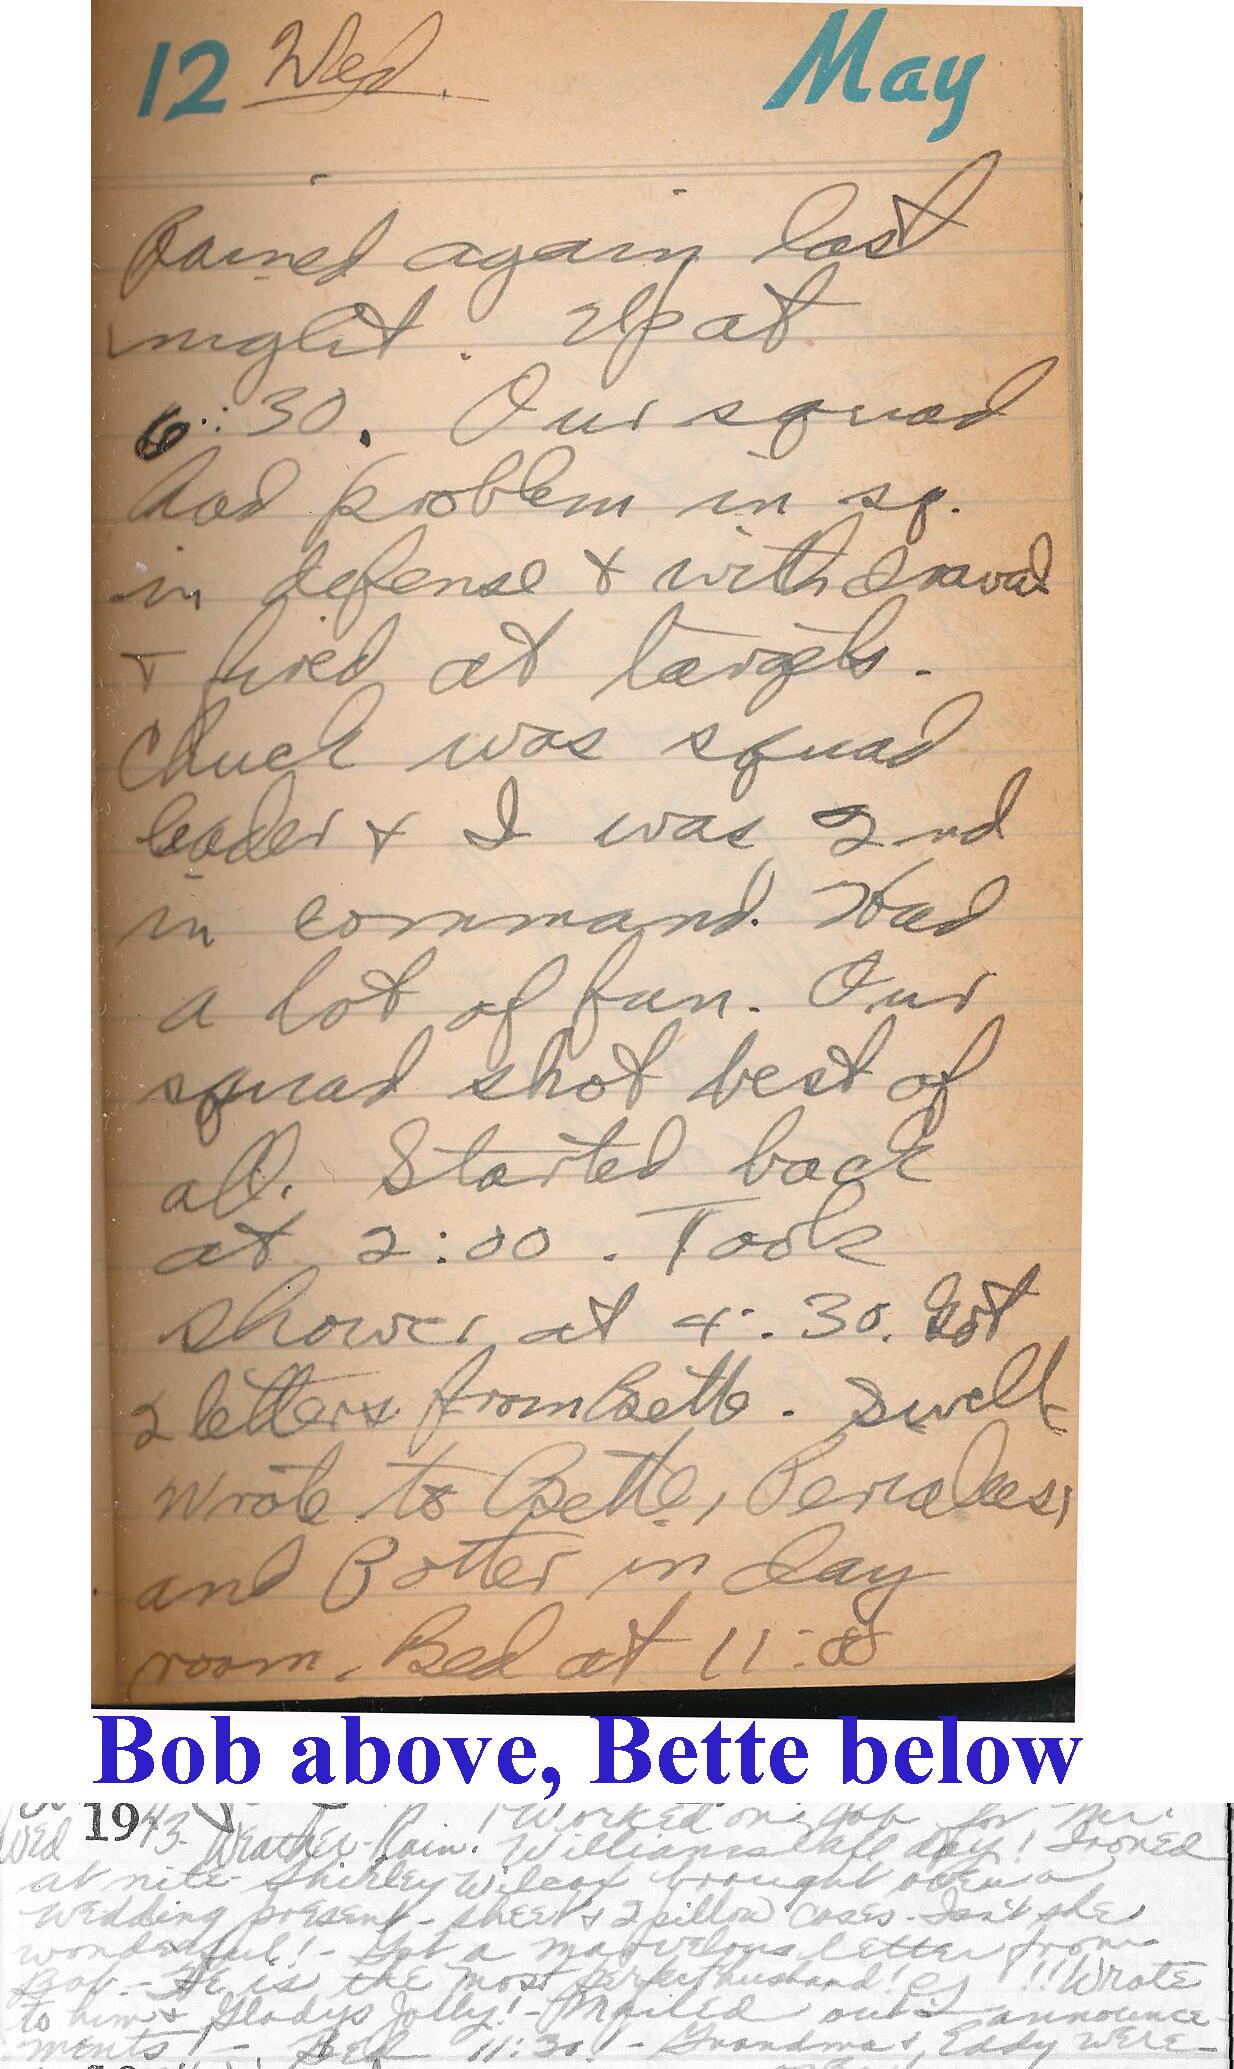 12 Wed. May
Rained again last
night. Up at
6:30. Our squad
had problem in sq.
in defense & withdrawal
+ fired at targets.
Chuck was squad
leader & I was 2nd
in command. Had
a lot of fun. Our
squad shot best of
all. Started back
at 2:00. Took
shower at 4:30. Got
2 letters from Bette. Swell
Wrote to Bette,
and Potter in day
room. Bed at 11:00
Bob above, Bette below
1943 Worked on job for Mr.
Wed Weather-Rain. Williams all day! Ironed
at nite- Shirley Wilcox brought over a
wedding present- sheet & 2 pillow cases- Isn't she
wonderful!- Got a marvelous letter from
Bob- He is the most perfect husband !!! Wrote
to him & Gladys Jolly!- Mailed out announce-
ments!- Bed 11:30!- Grandma & Eddy were-